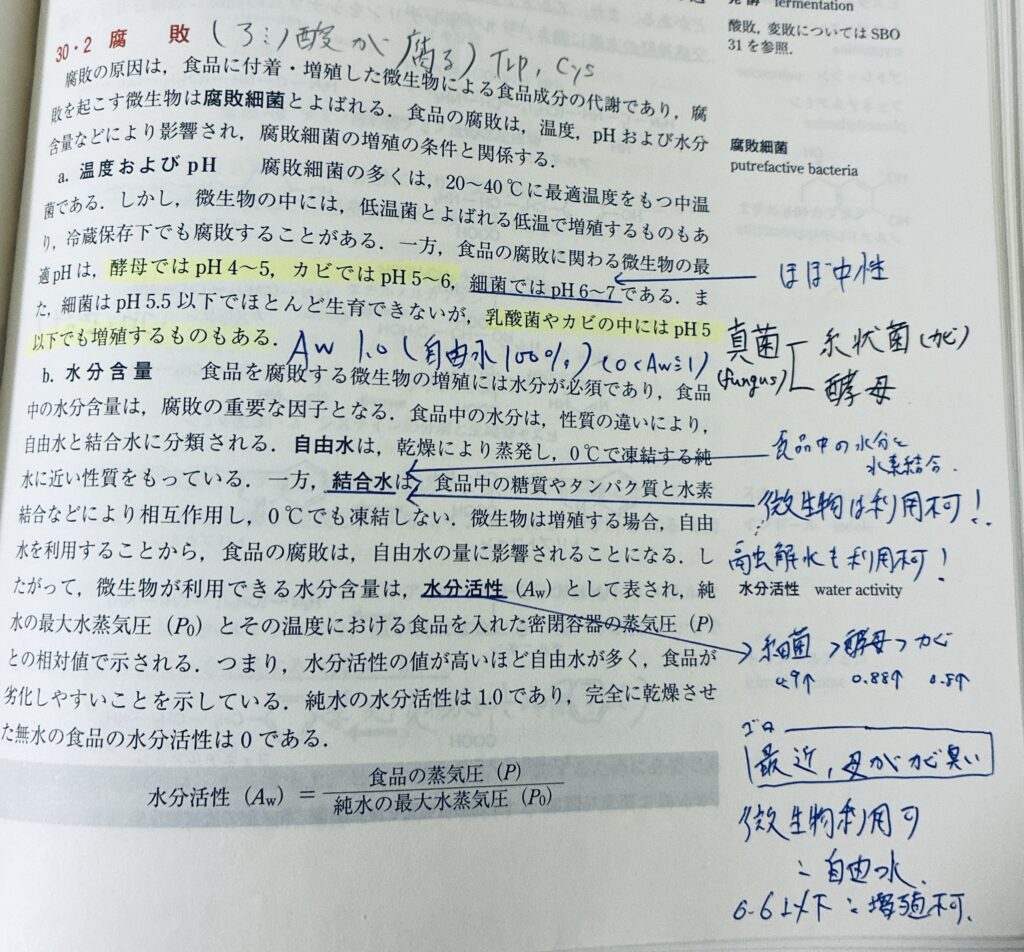 発酵 fermentation
酸敗，変敗についてはSBO
31を参照．
30・2 腐　敗 (アミノ酸が腐る) Trp, Cys
腐敗の原因は，食品に付着・増殖した微生物による食品成分の代謝であり，腐
敗を起こす微生物は腐敗細菌とよばれる．食品の腐敗は，温度，pHおよび水分
含量などにより影響され，腐敗細菌の増殖の条件と関係する．
腐敗細菌
putrefactive bacteria
a. 温度およびpH　腐敗細菌の多くは，20〜40℃に最適温度をもつ中温
菌である．しかし，微生物の中には，低温菌とよばれる低温で増殖するものもあ
り，冷蔵保存下でも腐敗することがある．一方，食品の腐敗に関わる微生物の最
適pHは，酵母ではpH 4〜5，カビではpH 5〜6，細菌ではpH 6〜7である．ま
た，細菌はpH 5.5以下でほとんど生育できないが，乳酸菌やカビの中にはpH 5
以下でも増殖するものもある．
ほぼ中性
Aw 1.0 (自由水100%) (0<Aw≦1)
真菌 糸状菌(カビ)
(fungus) 酵母
b. 水分含量　食品を腐敗する微生物の増殖には水分が必須であり，食品
中の水分含量は，腐敗の重要な因子となる．食品中の水分は，性質の違いにより，
自由水と結合水に分類される．自由水は，乾燥により蒸発し，0℃で凍結する純
水に近い性質をもっている．一方，結合水は，食品中の糖質やタンパク質と水素
結合などにより相互作用し，0℃でも凍結しない．微生物は増殖する場合，自由
水を利用することから，食品の腐敗は，自由水の量に影響されることになる．し
たがって，微生物が利用できる水分含量は，水分活性（Aw）として表され，純
水の最大水蒸気圧（P₀）とその温度における食品を入れた密閉容器の蒸気圧（P）
との相対値で示される．つまり，水分活性の値が高いほど自由水が多く，食品が
劣化しやすいことを示している．純水の水分活性は1.0であり，完全に乾燥させ
た無水の食品の水分活性は0である．
水分活性（Aw）＝ 食品の蒸気圧（P）
純水の最大水蒸気圧（P₀）
食品中の水分と
水素結合．
微生物は利用不可!
水も利用不可!
水分活性 water activity
細菌 > 酵母 > カビ
0.9↑ 0.88↑ 0.8↑
ゴロ
最近，母がカビ臭い
微生物利用可
：自由水．
0.6以下：増殖不可．